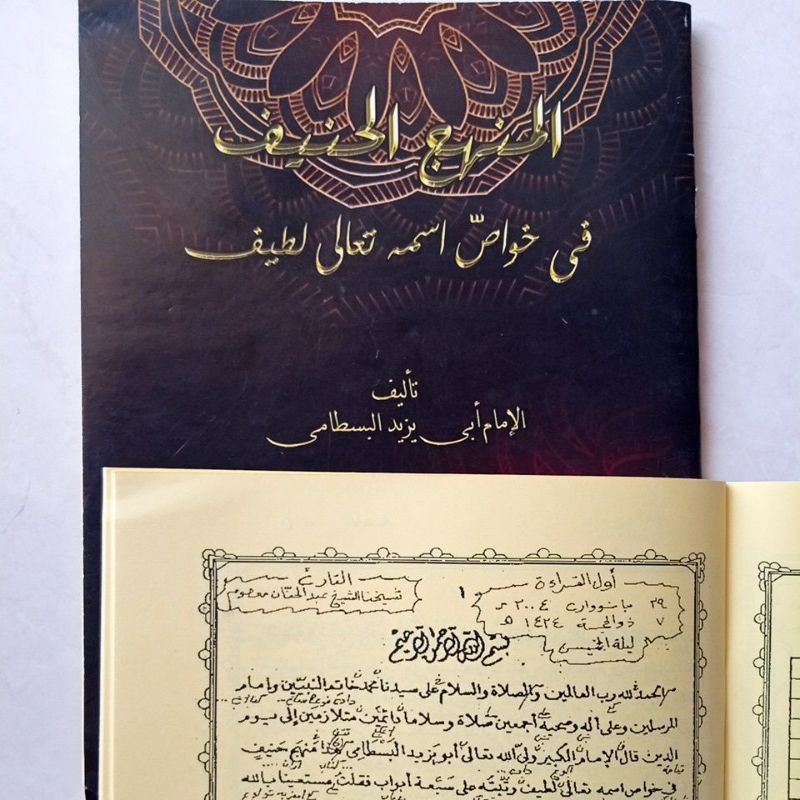 المنهج الحنيف
في خواصّ اسمه تعالى لطيف
تأليف
الإمام أبي يزيد البسطامي
أول القراءة
٢٩ يانوواري ٢٠٠٤ م
٧ ذوالحجة ١٤٢٤ هـ
ليلة الخميس
القارئ
شيخنا الشيخ عبد الحنان معصوم
١
بسم الله الرحمن الرحيم
الحمد لله رب العالمين والصلاة والسلام على سيدنا محمد خاتم النبيّين وإمام
المرسلين وعلى آله وصحبه أجمعين صلاة وسلاما دائمين متلازمين إلى يوم
الدين قال الإمام الكبير وليّ الله تعالى أبو يزيد البسطامي هذا منهج حنيف
في خواص اسمه تعالى لطيف ورتبته على سبعة أبواب فقلت مستعينا بالله